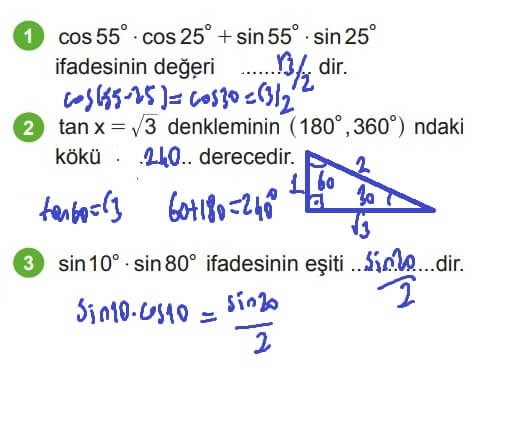 1 cos 55° · cos 25° + sin 55° · sin 25°
ifadesinin değeri .......√3/2 dir.
cos(55-25)=cos30=√3/2
2 tan x = √3 denkleminin (180°, 360°) ndaki
kökü . .240.. derecedir.
tan60=√3 60+180=240°
1 60 2 30 √3
3 sin 10° · sin 80° ifadesinin eşiti ..sin20/2...dir.
sin10.cos10 = sin20/2